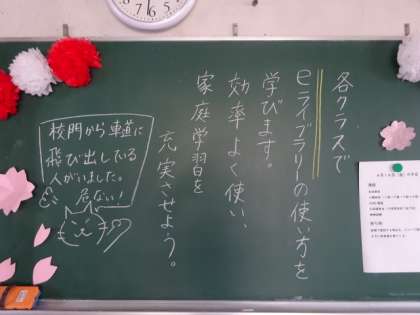 各クラスで
eライブラリーの使い方を
学びます。
効率よく使い、
家庭学習を
充実させよう。
校門から車道に
飛び出している
人がいました。
危ない!